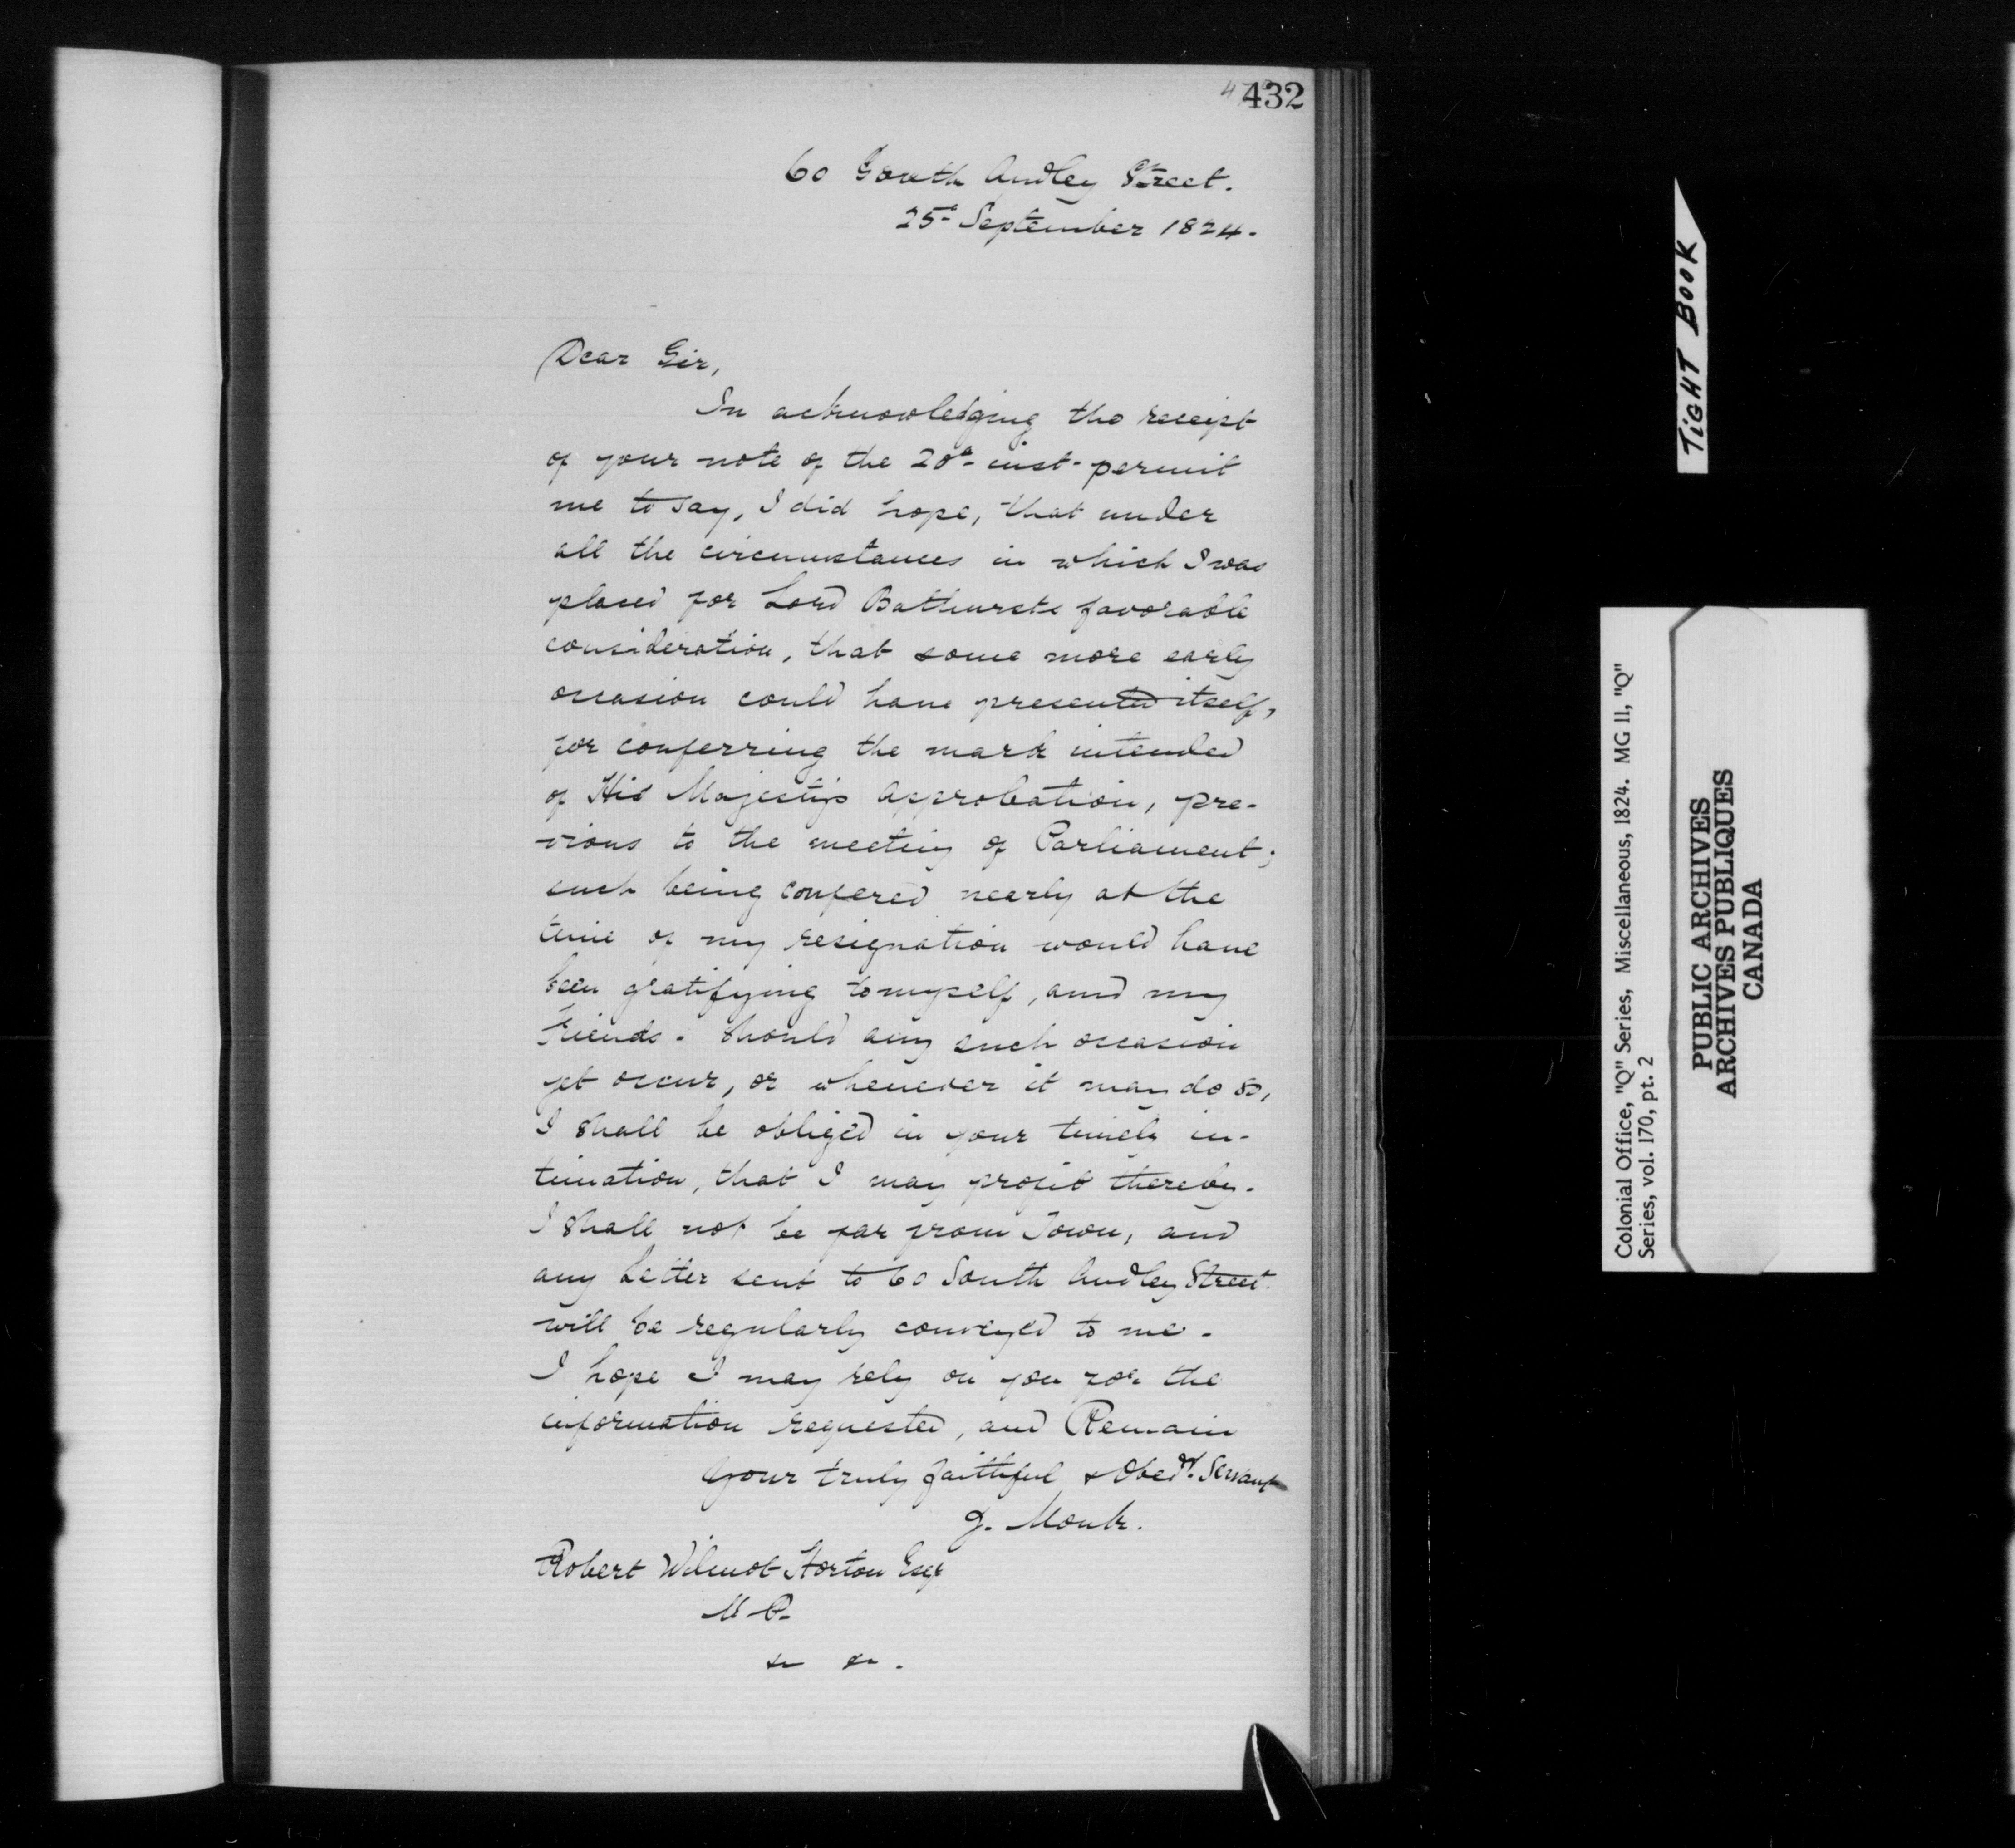 432
60 South Audley Street.
25th September 1824.
Dear Sir,
In acknowledging the receipt
of your note of the 20th inst. permit
me to say, I did hope, that under
all the circumstances in which I was
placed for Lord Bathursts favorable
consideration, that some more early
occasion could have presented itself,
for conferring the mark intended
of His Majesty's approbation, pre-
vious to the meeting of Parliament;
such being confered nearly at the
time of my resignation would have
been gratifying to myself, and my
friends. Should any such occasion
yet occur, or whenever it may do so,
I shall be obliged in your timely in-
timation, that I may profit thereby.
I shall not be far from Town, and
any Letter sent to 60 South Audley Street.
will be regularly conveyed to me.
I hope I may rely on you for the
information requested, and Remain
Your truly faithful & Obedt. Servant
J. Monk.
Robert Wilmot Horton Esqr
M P.
&c &c.
TIGHT BOOK
Colonial Office, "Q" Series, Miscellaneous, 1824. MG 11, "Q"
Series, vol. 170, pt. 2
PUBLIC ARCHIVES
ARCHIVES PUBLIQUES
CANADA